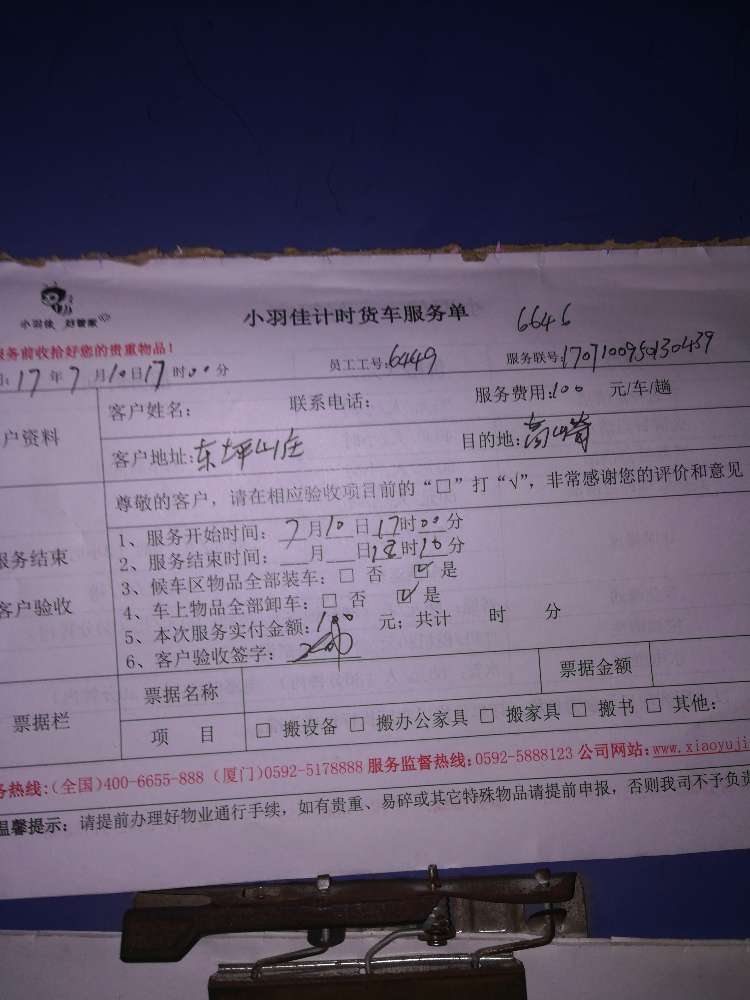 小羽佳 好管家
小羽佳计时货车服务单 6646
服务前收拾好您的贵重物品！
17年7月10日17时00分 员工工号:6449 服务联号:1707100950130439
户资料 客户姓名: 联系电话: 服务费用:100 元/车/趟
客户地址:东坪山庄 目的地:高崎
尊敬的客户，请在相应验收项目前的“□”打“√”，非常感谢您的评价和意见
服务结束
客户验收
1、服务开始时间: 7月10日17时00分
2、服务结束时间: 月 日18时10分
3、候车区物品全部装车: □ 否 ☑ 是
4、车上物品全部卸车: □ 否 ☑ 是
5、本次服务实付金额: 100 元; 共计 时 分
6、客户验收签字:
票据栏 票据名称 票据金额
项 目 □ 搬设备 □ 搬办公家具 □ 搬家具 □ 搬书 □ 其他:
务热线:(全国)400-6655-888 (厦门)0592-5178888 服务监督热线:0592-5888123 公司网站:www.xiaoyuji
温馨提示: 请提前办理好物业通行手续，如有贵重、易碎或其它特殊物品请提前申报，否则我司不予负责